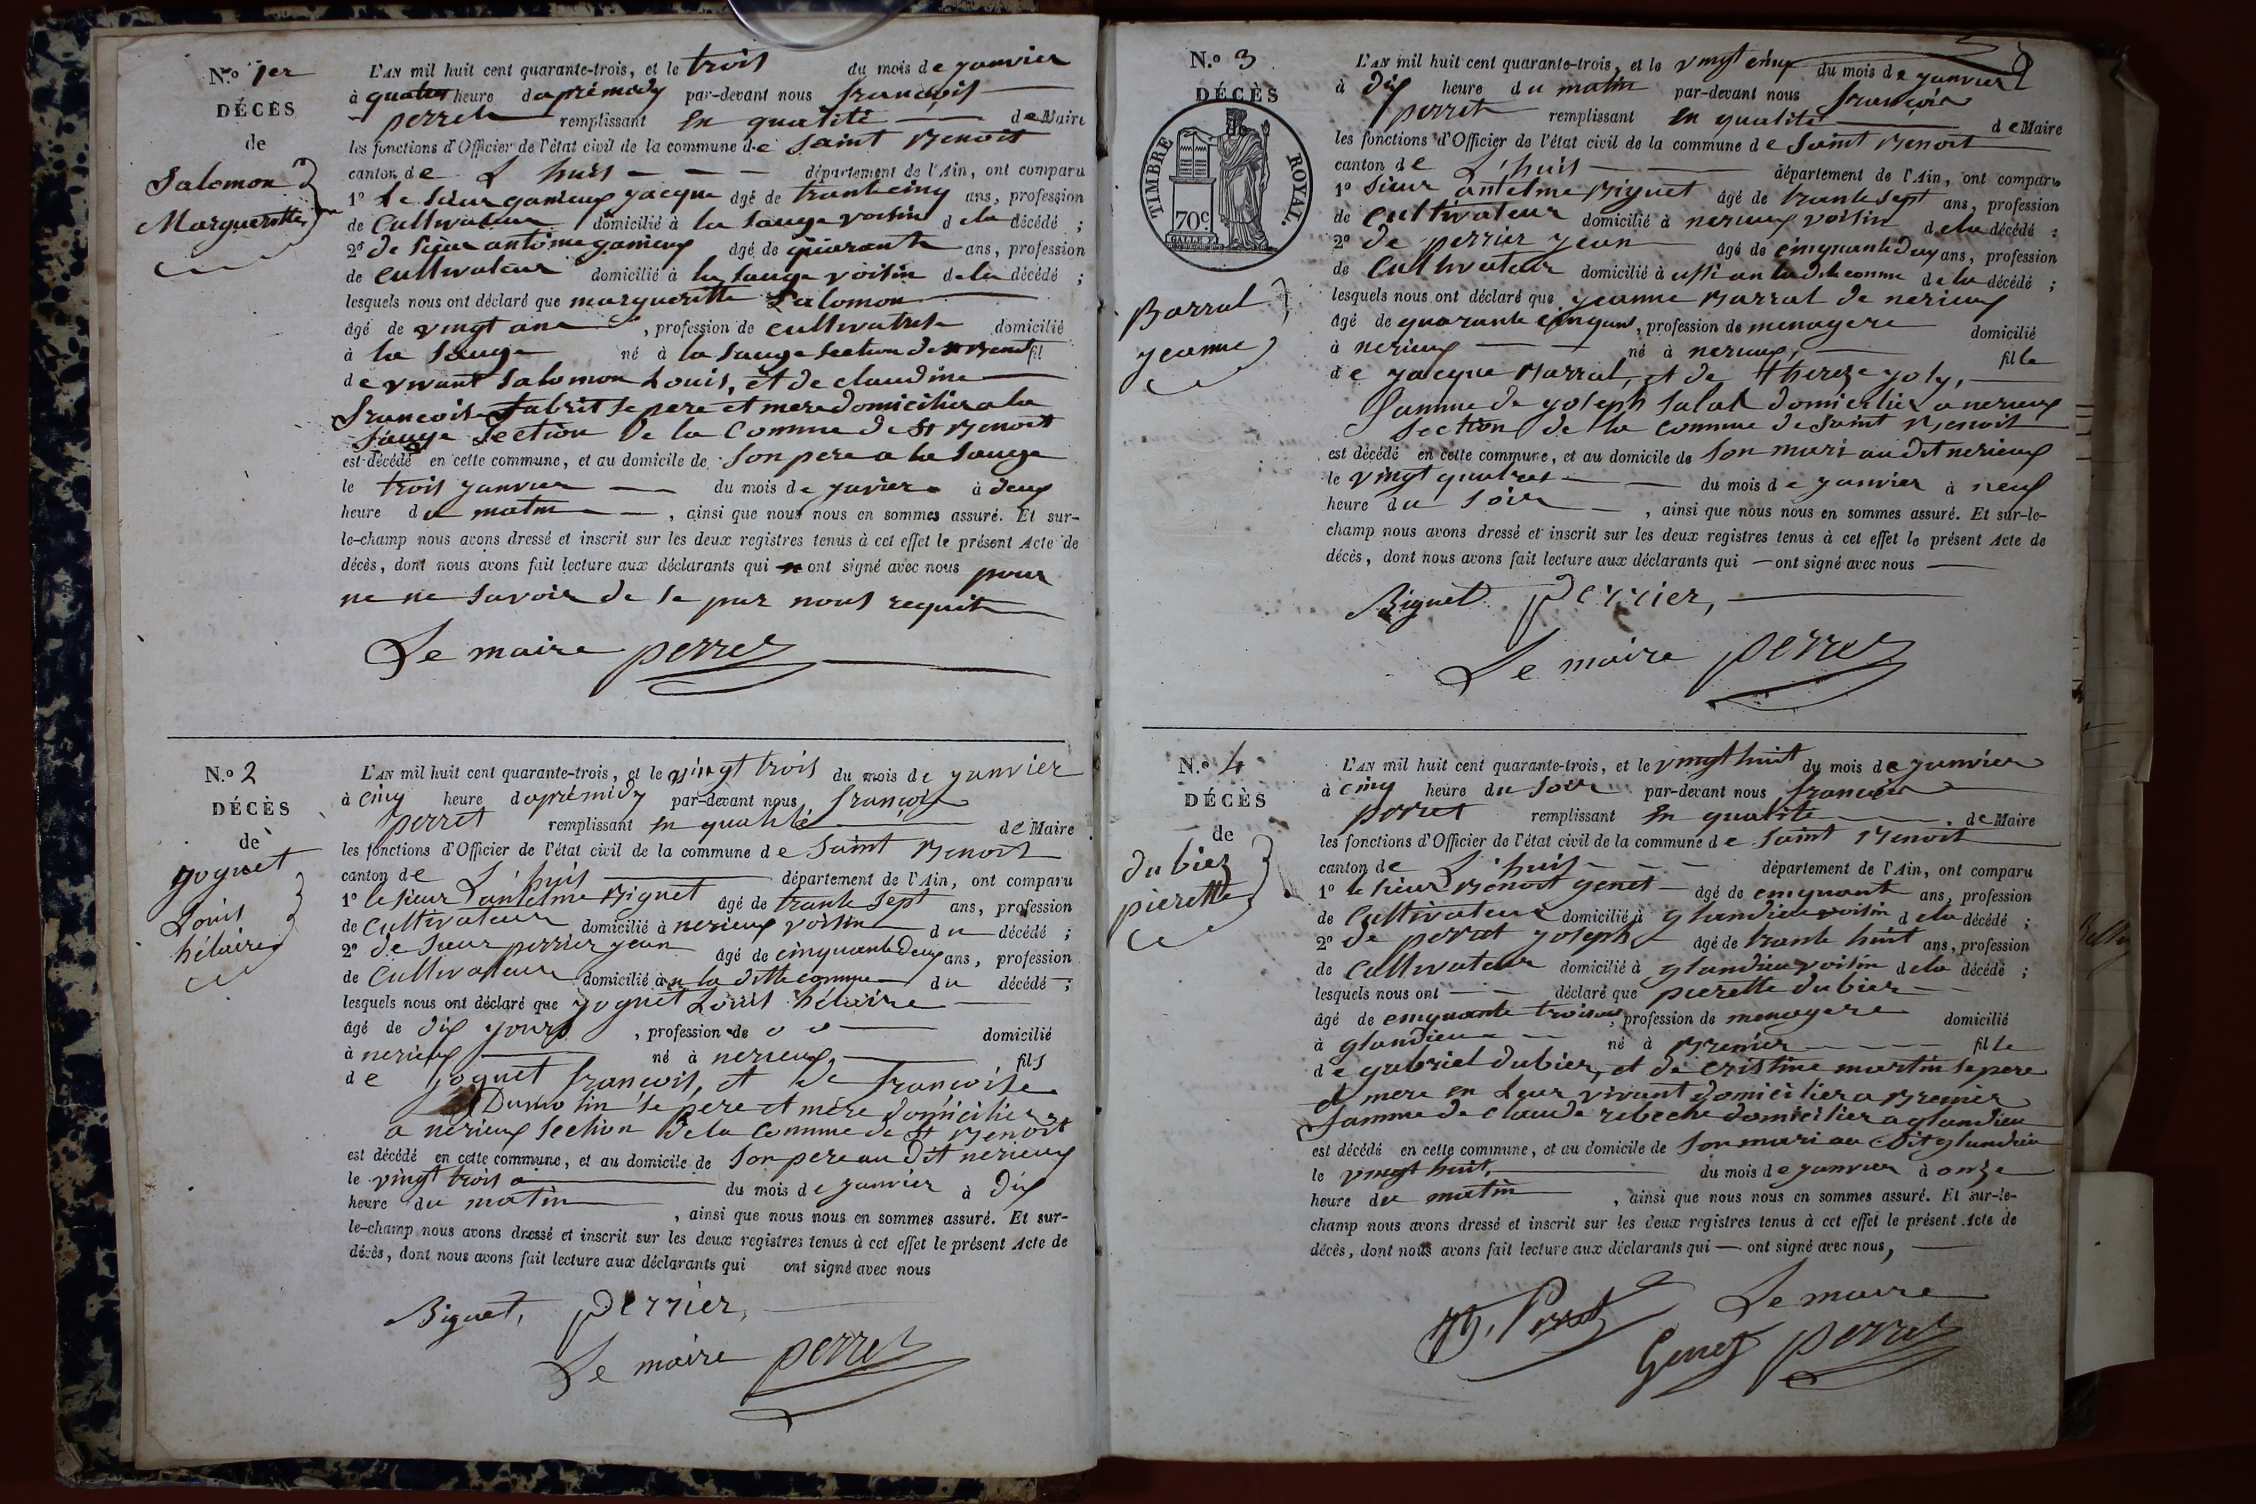 N.o 1er
DÉCÈS
de
Salomon
Margueritte
L'AN mil huit cent quarante-trois, et le trois du mois de janvier
à quatre heure daprémidy par-devant nous françois
perret remplissant en qualité de Maire
les fonctions d'Officier de l'état civil de la commune de Saint Benoit
canton de L'huis département de l'Ain, ont comparu
1o Le Sieur jacque âgé de trante cinq ans, profession
de Cultivateur domicilié à la Sauge voisin de la décédé ;
2o de Sieur antoime âgé de quarante ans, profession
de cultivateur domicilié à la Sauge voisin de la décédé ;
lesquels nous ont déclaré que margueritte Salomon
âgé de vingt ans, profession de cultivatrise domicilié
à la Sauge né à la Sauge Section de St Benoit fil
de vivant Salomon Louis, et de claudine
francoise fabrit Se pere et mere domicilier a la
Sauge Section De la Comune de St Benoit
est décédé en cette commune, et au domicile de Son pere a la Sauge
le trois janvier du mois de javier à deux
heure du matin, ainsi que nous nous en sommes assuré. Et sur-
le-champ nous avons dressé et inscrit sur les deux registres tenus à cet effet le présent Acte de
décès, dont nous avons fait lecture aux déclarants qui n ont signé avec nous pour
ne ne Savoir de se par nous requit
Le maire perret
N.o 2
DÉCÈS
de
joguet
Louis
hélaire
L'AN mil huit cent quarante-trois, et le vingt trois du mois de janvier
à cinq heure daprémidy par-devant nous, françois
perret remplissant en qualité de Maire
les fonctions d'Officier de l'état civil de la commune de Saint Benoit
canton de L'huis département de l'Ain, ont comparu
1o le Sieur antelme Biguet âgé de trante Sept ans, profession
de Cultivateur domicilié à nerieux voisin du décédé ;
2o de Sieur perrier jean âgé de cinquante Deux ans, profession
de Cultivateur domicilié à la ditte comune du décédé ;
lesquels nous ont déclaré que joguet Louis hélaire
âgé de dix jours, profession de domicilié
à nerieux né à nerieux, fils
de joguet francois, et de francoise
Dumolin Se pere et mére domicilier
a nerieux Section De la Comune de St Benoit
est décédé en cette commune, et au domicile de Son pere au Dit nerieux
le vingt trois du mois de janvier à dix
heure du matin, ainsi que nous nous en sommes assuré. Et sur-
le-champ nous avons dressé et inscrit sur les deux registres tenus à cet effet le présent Acte de
décès, dont nous avons fait lecture aux déclarants qui ont signé avec nous
Biguet, perrier,
Le maire perret
N.o 3
DÉCÈS
TIMBRE ROYAL.
70c.
Barral
jeanne
L'AN mil huit cent quarante-trois, et le vingt cinq du mois de janvier
à dix heure du matin par-devant nous françois
perret remplissant en qualité de Maire
les fonctions d'Officier de l'état civil de la commune de Saint Benoit
canton de L'huis département de l'Ain, ont comparu
1o Sieur antelme Biguet âgé de trante Sept ans, profession
de Cultivateur domicilié à nerieux voisin de la décédé ;
2o de perrier jean âgé de cinquante deux ans, profession
de Cultivateur domicilié à de la décédé ;
lesquels nous ont déclaré que jeanne Barral de nerieux
âgé de quarante cinq ans, profession de menagere domicilié
à nerieux né à nerieux, fille
de jacque Barral, et de therese joly,
famme de joseph Salat domicilier a nerieux
Section de la comune de Saint Benoit
est décédé en cette commune, et au domicile de Son mari au dit nerieux
le vingt quatres du mois de janvier à neuf
heure du Soir, ainsi que nous nous en sommes assuré. Et sur-le-
champ nous avons dressé et inscrit sur les deux registres tenus à cet effet le présent Acte de
décès, dont nous avons fait lecture aux déclarants qui ont signé avec nous
Biguet perrier,
Le maire perret
N.o 4
DÉCÈS
de
dubiez
pierette
L'AN mil huit cent quarante-trois, et le vingt huit du mois de janvier
à cinq heure du Soir par-devant nous francois
perret remplissant en qualité de Maire
les fonctions d'Officier de l'état civil de la commune de Saint Benoit
canton de L'huis département de l'Ain, ont comparu
1o le Sieur Benoit genet âgé de cinquante ans, profession
de Cultivateur domicilié à glandieu voisin de la décédé ;
2o de perrat joseph âgé de trante huit ans, profession
de Cultivateur domicilié à glandieu voisin de la décédé ;
lesquels nous ont déclaré que pierette dubier
âgé de cinquante trois ans, profession de menagere domicilié
à glandieu né à Bremier fille
de gabriel dubier, et de cristine martin Se pere
et mere en Leur vivant domicilier a Bremier
famme de claude rebeche domicilier a glandieu
est décédé en cette commune, et au domicile de Son mari au Dit glandieu
le vingt huit du mois de janvier à onze
heure du matin, ainsi que nous nous en sommes assuré. Et sur-le-
champ nous avons dressé et inscrit sur les deux registres tenus à cet effet le présent Acte de
décès, dont nous avons fait lecture aux déclarants qui ont signé avec nous,
Perrat Le maire
Genet perret